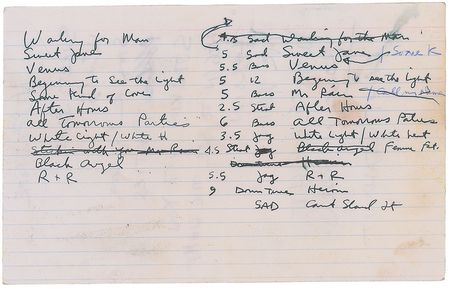 Waiting for Man
Sweet Jane
Venus
Beginning to See the Light
Some Kind of Love
After Hours
All Tomorrows Parties
White Light / White H
Black Angel
R + R
4.5 Sad Waiting for the Man
5 Sad Sweet Jane Some K
5.5 Bass Venus
5 12 Beginning to see the light
5 Bass Mr. Rain
2.5 After Hours
6 Bass All Tomorrows Parties
3.5 Jag White Light / White heat
4.5 Jag Black Angel Femme Fat.
Heroin
5.5 Jag R + R
9 Down Heroin
SAD Cant Stand It